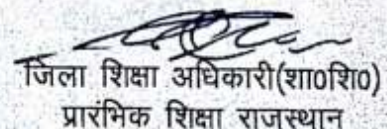 जिला शिक्षा अधिकारी(शा०शि०)
प्रारंभिक शिक्षा राजस्थान